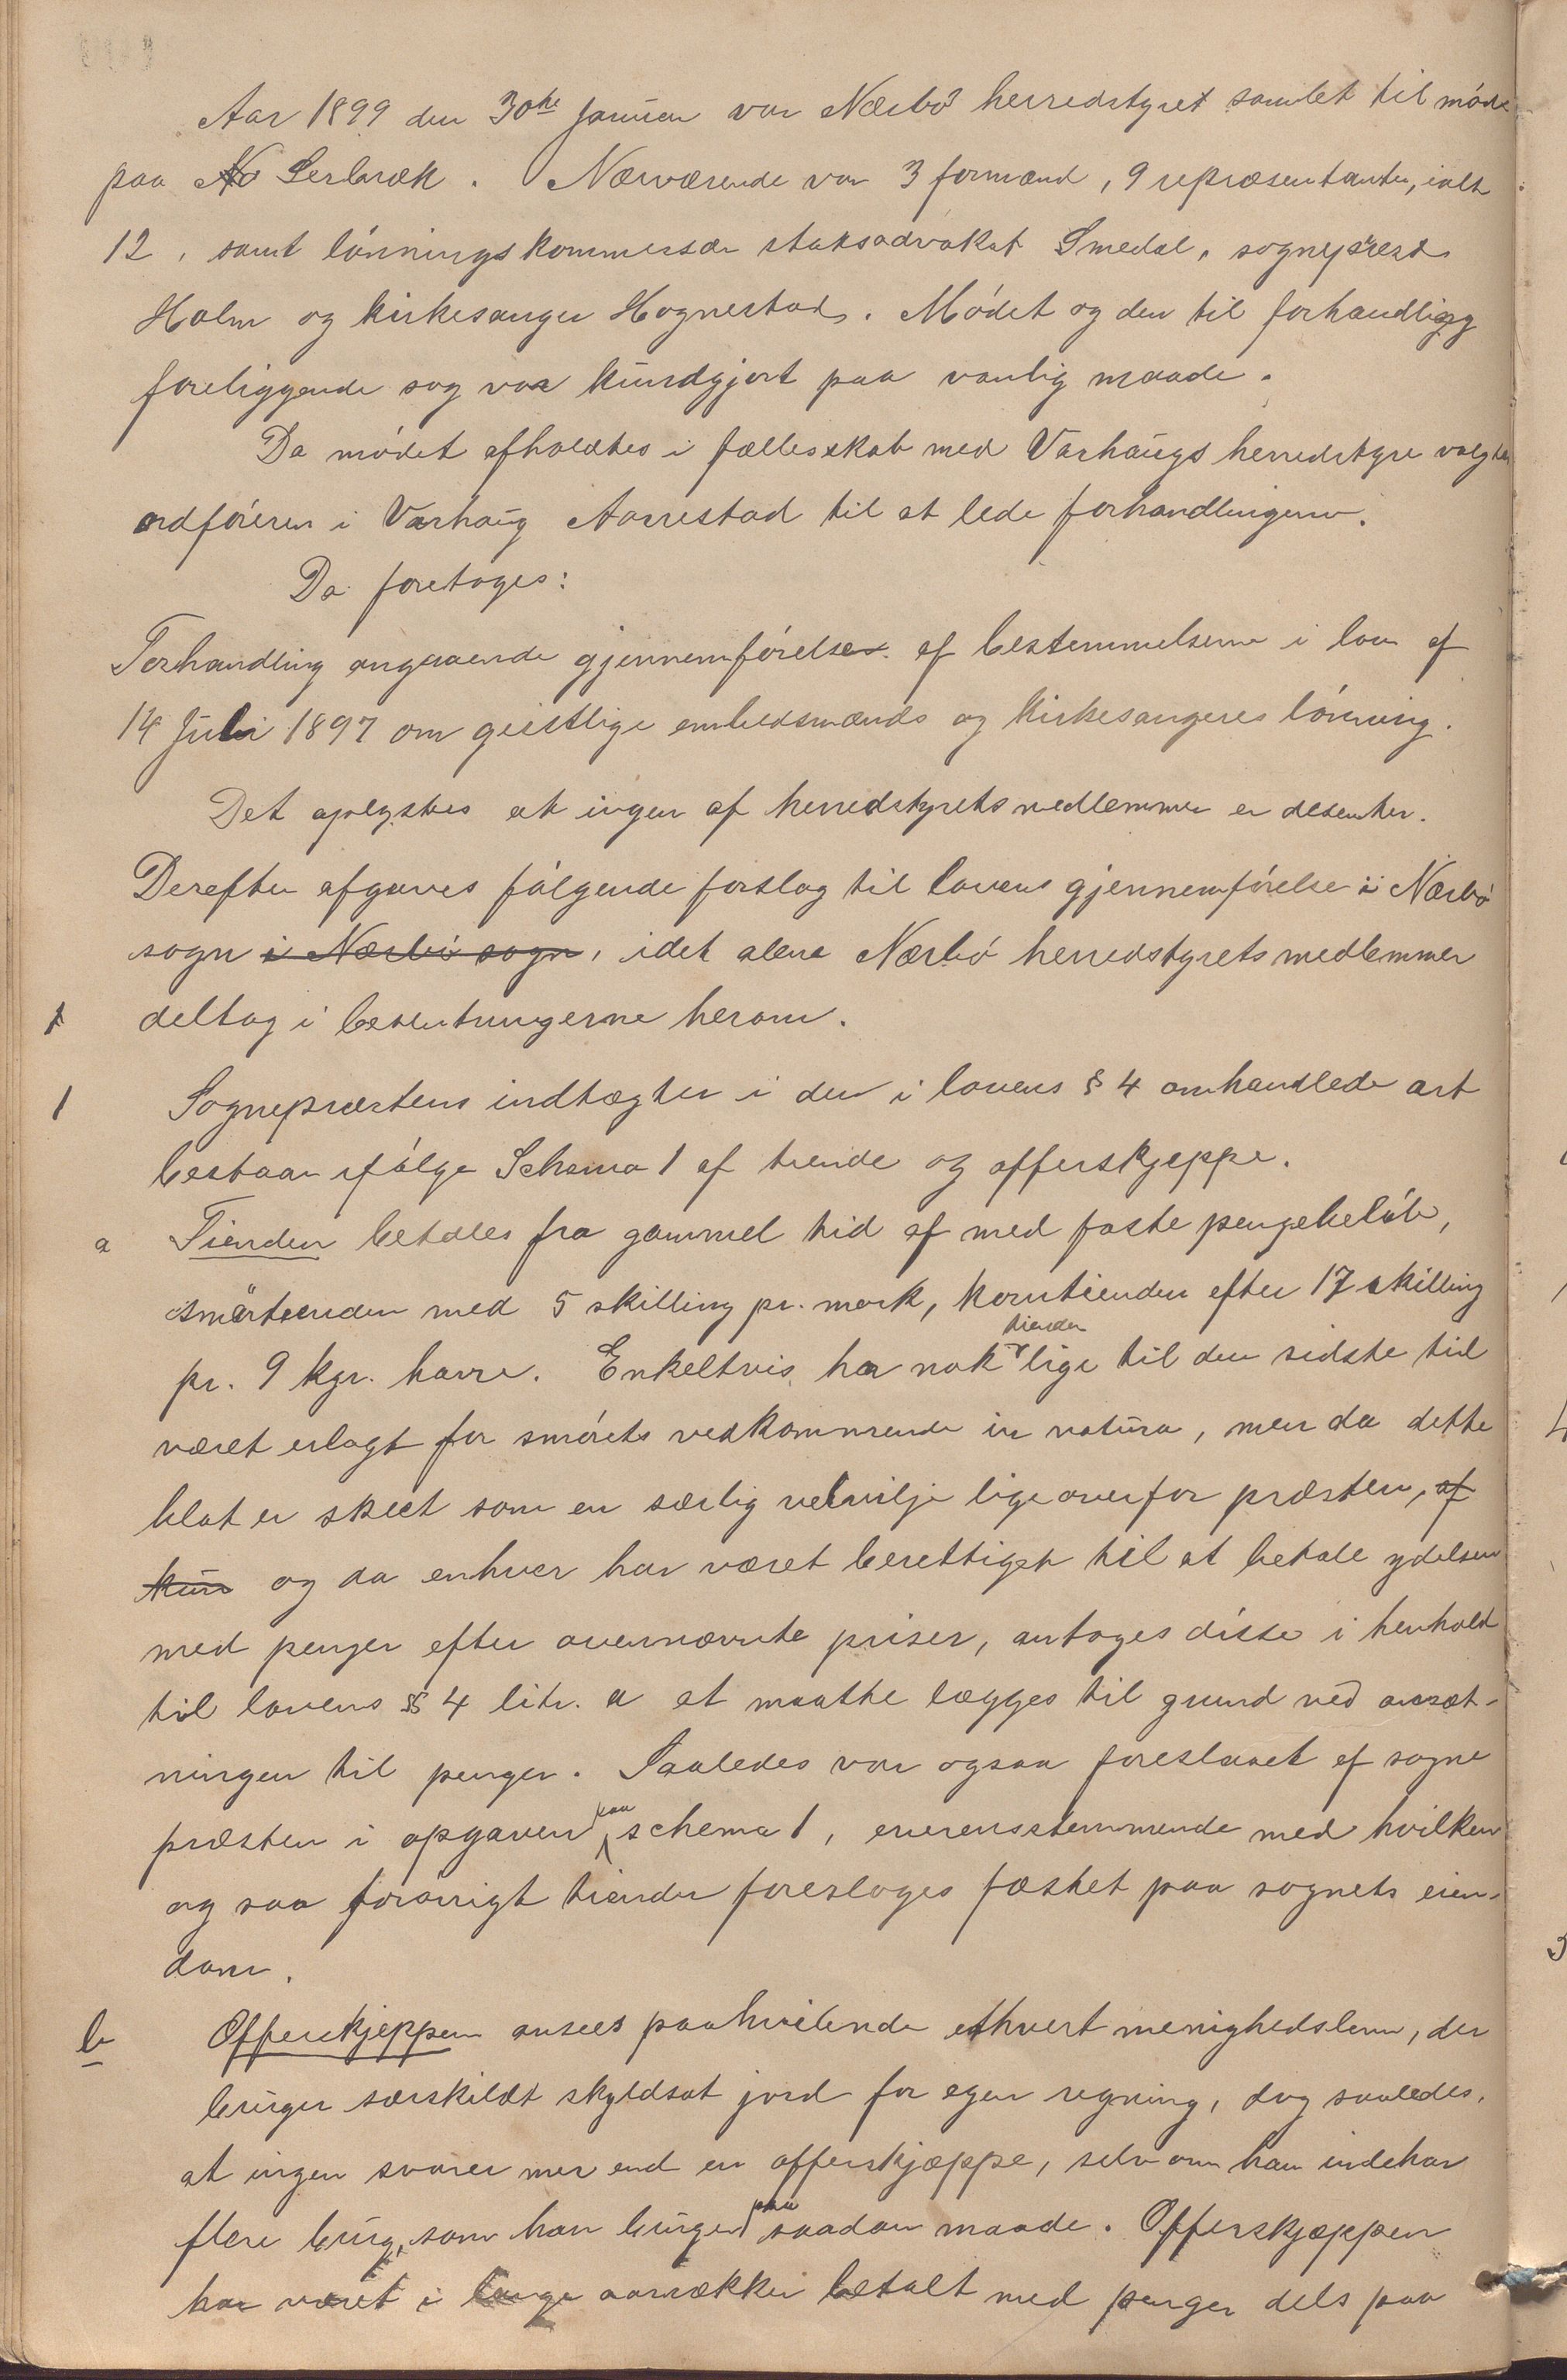 Aar 1899 den 30te Januar var Nærbø herredstyret samlet til møde
paa No Serbræk. Nærværende var 3 formænd, 9 repræsentanter, ialt
12, samt lønningskommersær statsadvokat Smedal, sogneprest
Holm og kirkesanger Hognestad. Mødet og den til forhandling
foreliggende sag var kundgjort paa vanlig maade.
Da mødet afholdtes i fællesskab med Varhaugs herredstyre valgtes
ordføreren i Varhaug Aarrestad til at lede forhandlingerne.
Da foretoges:
Forhandling angaaende gjennemførelsen af bestemmelserne i lov af
14 Juli 1897 om geistlige embedsmænds og kirkesangeres lønning.
Det oplystes at ingen af herredstyrets medlemmer er desenter.
Derefter afgaves følgende forslag til lovens gjennemførelse i Nærbø
sogn i Nærbø sogn, idet alene Nærbø herredstyrets medlemmer
1 deltog i beslutningerne herom.
1 Sogneprestens indtægter i den i lovens § 4 omhandlede art
bestaar ifølge Schema 1 af tiende og offerskjeppe.
a Tienden betales fra gammel tid af med faste pengebeløb,
smørtienden med 5 skilling pr. mark, korntienden efter 17 skilling
pr. 9 kgr. havre. Enkeltvis har nok tienden lige til den sidste tid
været erlagt for smørets vedkommende in natura, men da dette
blot er skeet som en særlig velvilje lige overfor præsten, af
kun og da enhver har været berettiget til at betale ydelsen
med penger efter ovennævnte priser, antoges disse i henhold
til lovens § 4 litr. a at maatte lægges til grund ved ansæt-
ningen til penger. Saaledes var ogsaa foreslaaet af sogne
præsten i opgaven paa schema 1, overensstemmende med hvilken
og saa forøvrigt tienden foresloges fæstet paa sognets eien-
dom.
b Offerskjeppen ansees paahvilende ethvert menighedslem, der
bruger særskildt skyldsat jord for egen regning, dog saaledes,
at ingen svarer mer end en offerskjæppe, selv om han indehar
flere brug, som han bruger paa saadan maade. Offerskjæppen
har været i lange aarrækker betalt med penger dels paa